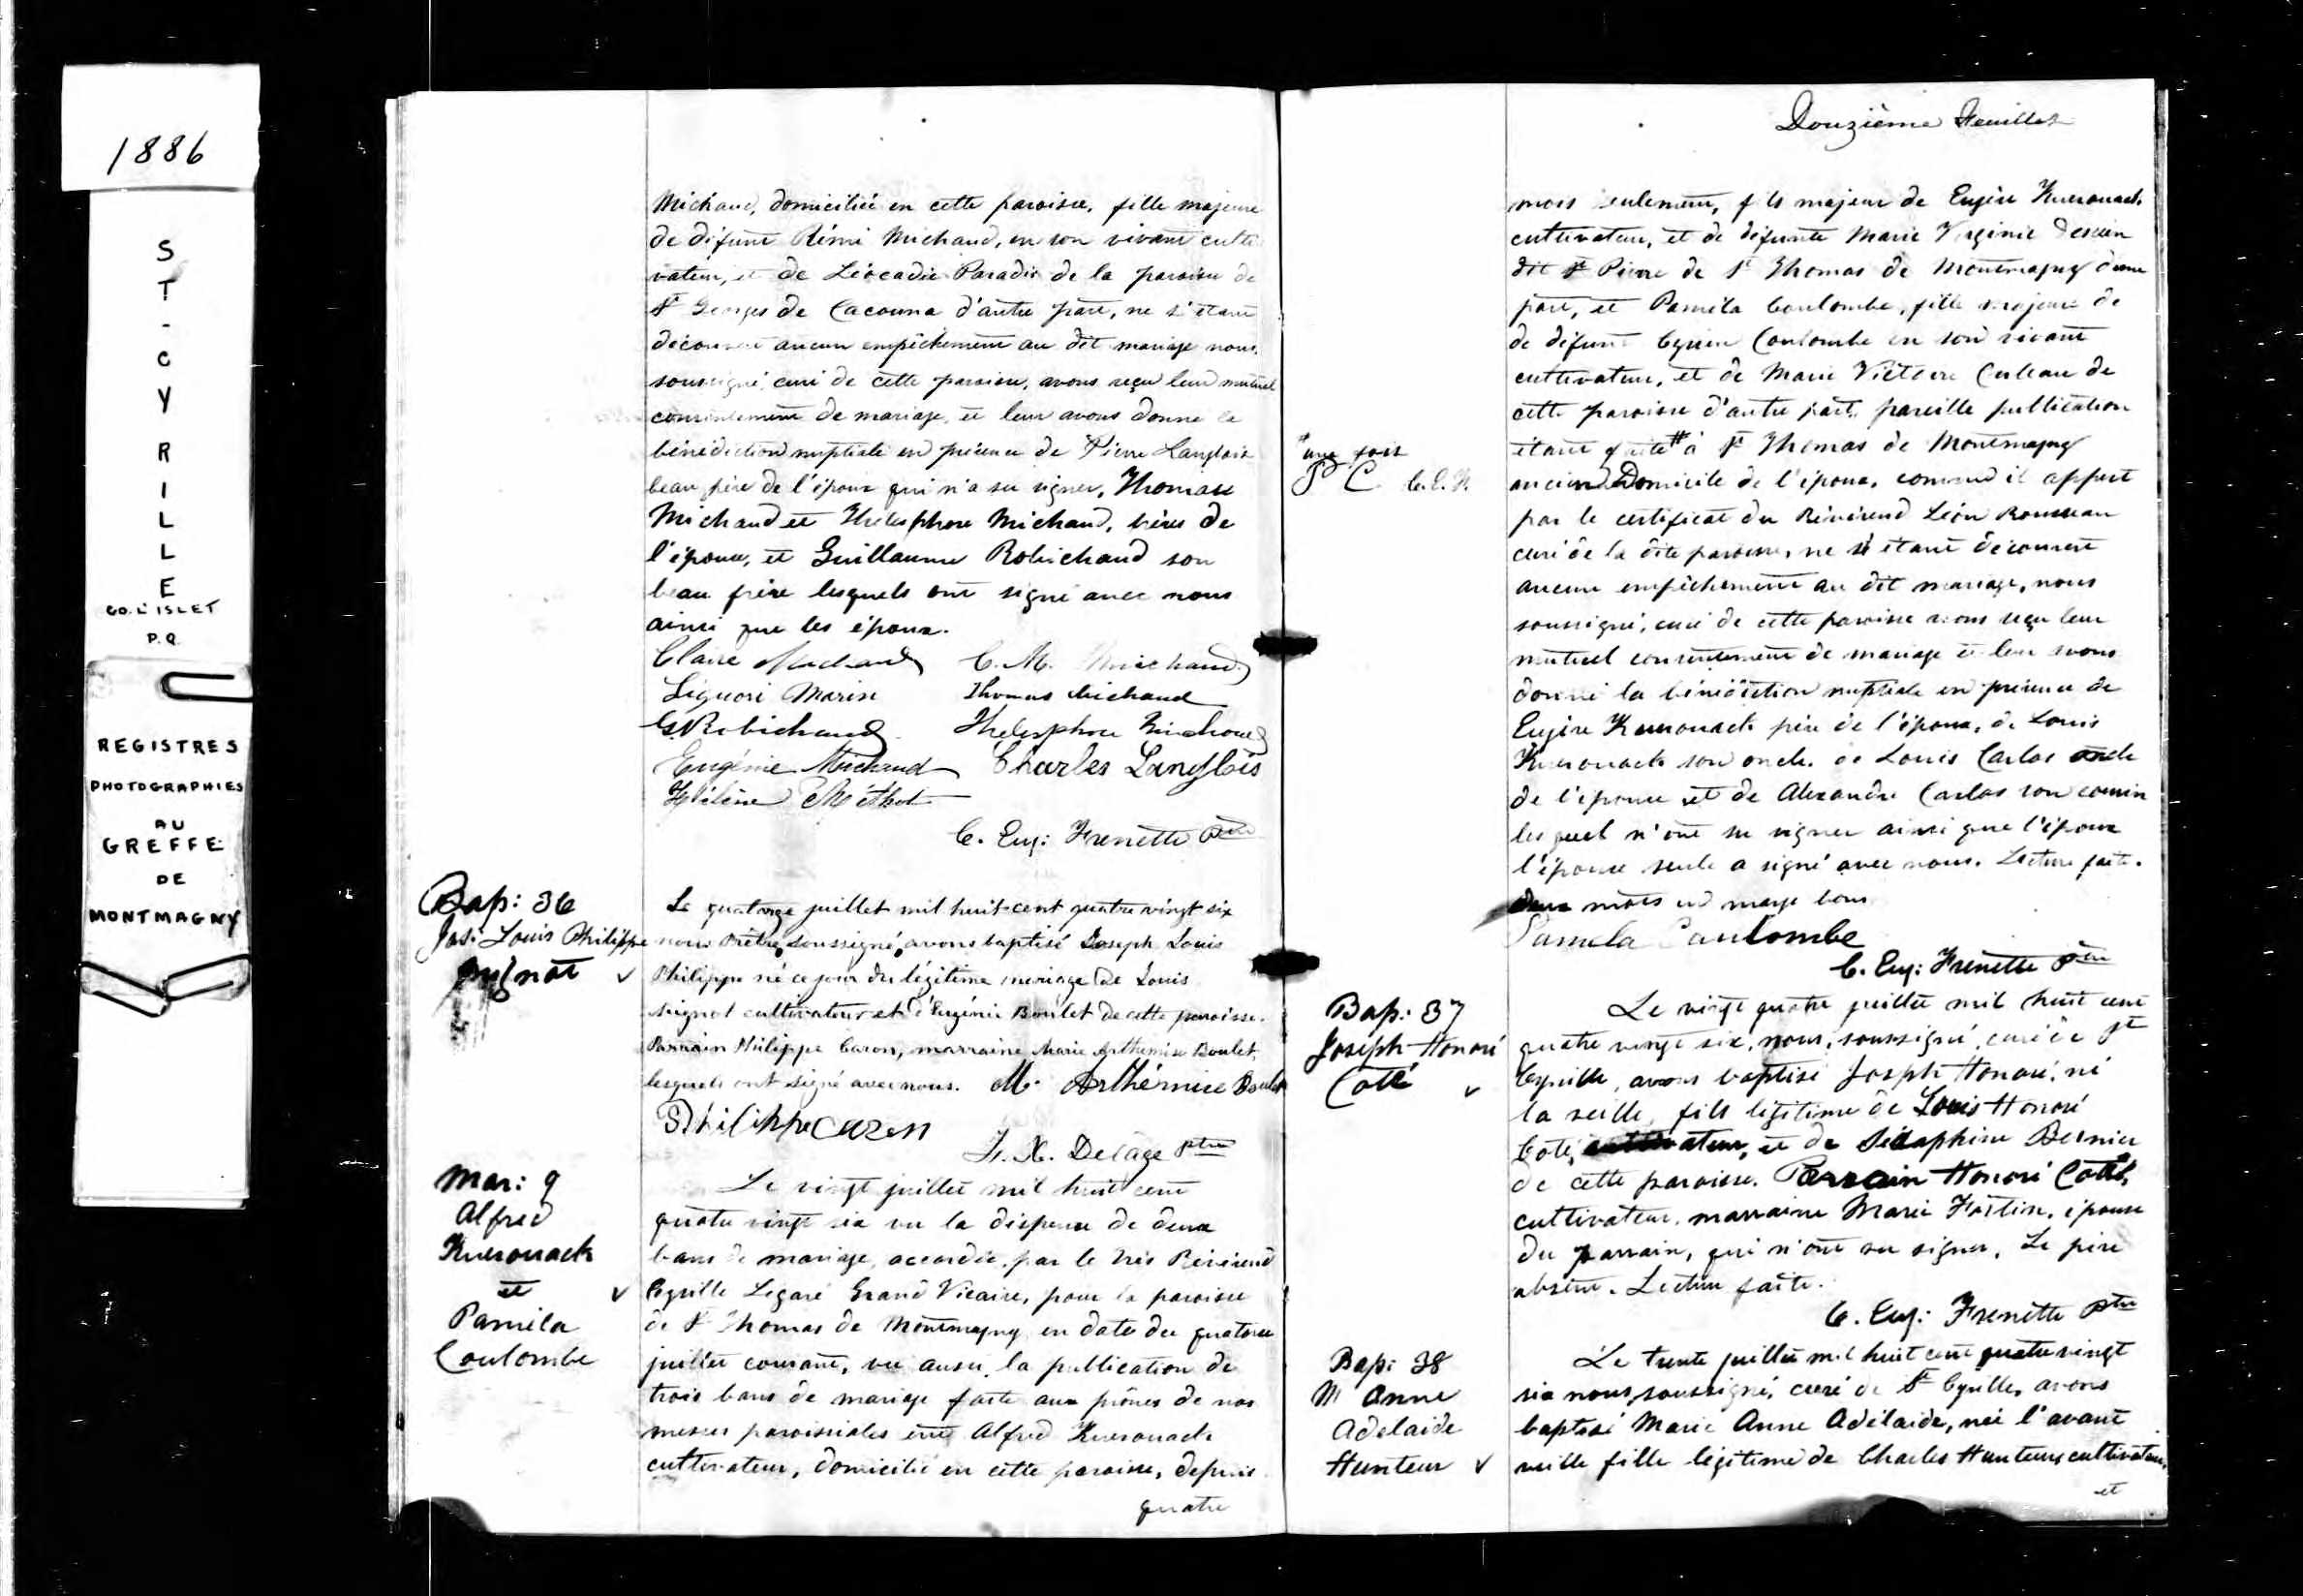 1886
ST-CYRILLE
CO. L'ISLET
P.Q.
REGISTRES
PHOTOGRAPHIES
AU
GREFFE
DE
MONTMAGNY
Michaud, domiciliée en cette paroisse, fille majeure
de défunt Rémi Michaud, en son vivant culti
vateur, et de Léocadie Paradis de la paroisse de
St Georges de Cacouna d'autre part, ne s'étant
découvert aucun empêchement au dit mariage nous,
soussigné, curé de cette paroisse, avons reçu leur mutuel
consentement de mariage, et leur avons donné la
bénédiction nuptiale en présence de Pierre Langlois
beau père de l'époux qui n'a su signer, Thomas
Michaud et Thélesphore Michaud, frères de
l'épouse, et Guillaume Robichaud son
beau frère lesquels ont signé avec nous
ainsi que les époux.
Claire Michaud C. M. Michaud
Liguori Marin Thomas Michaud
G. Robichaud Thelesphore Michaud
Eugénie Michaud Charles Langlois
Hélène Méthot
C. Eug: Frenette Ptre
Bap: 36
Jos: Louis Philippe
Le quatorze juillet mil huit cent quatre vingt six
nous Prêtre soussigné avons baptisé Joseph Louis
Philippe né ce jour du légitime mariage de Louis
cultivateur et d'Eugénie Boulet de cette paroisse.
Parrain Philippe Caron, marraine Marie Arthemise Boulet,
lesquels ont signé avec nous. M. Arthémise Boulet
Philippe Caron
F. X. Delâge Ptre
Mar: 9
Alfred
Kuerouack
et
Paméla
Coulombe
Le vingt juillet mil huit cent
quatre vingt six vu la dispense de deux
bans de mariage, accordée, par le très Révérend
Cyrille Légaré Grand Vicaire, pour la paroisse
de St Thomas de Montmagny en date du quatorze
juillet courant, vu aussi la publication de
trois bans de mariage faite aux prônes de nos
messes paroissiales entre Alfred Kuerouack
cultivateur, domicilié en cette paroisse, depuis
quatre
Douzième Feuillet
mois seulement, fils majeur de Eugène Kuerouack
cultivateur, et de défunte Marie Virginie
dit St Pierre de St Thomas de Montmagny d'une
part, et Paméla Coulombe, fille majeure de
de défunt Coulombe en son vivant
cultivateur, et de Marie Victoire de
cette paroisse d'autre part, pareille publication
étant faite # à St Thomas de Montmagny
# une fois
P C C. E. F.
ancien Domicile de l'époux, comme il appert
par le certificat du Révérend Léon Rousseau
curé de la dite paroisse, ne s'étant découvert
aucun empêchement au dit mariage, nous
soussigné, curé de cette paroisse avons reçu leur
mutuel consentement de mariage et leur avons
donné la bénédiction nuptiale en présence de
Eugène Kuerouack père de l'époux, de Louis
Kuerouack son oncle, de Louis Carlos oncle
de l'épouse et de Alexandre Carlos son cousin
lesquel n'ont su signer ainsi que l'époux
l'épouse seule a signé avec nous. Lecture faite.
deux mots en marge bons
Paméla Coulombe
C. Eug: Frenette Ptre
Bap: 37
Joseph Honoré
Côté
Le vingt quatre juillet mil huit cent
quatre vingt six, nous, soussigné, curé de St
Cyrille, avons baptisé Joseph Honoré, né
la veille, fils légitime de Louis Honoré
Coté, cultivateur, et de Séraphine Bernier
de cette paroisse. Parrain Honoré Côté,
cultivateur, marraine Marie Fortin, épouse
du parrain, qui n'ont su signer. Le père
absent. Lecture faite.
C. Eug: Frenette Ptre
Bap: 38
M Anne
Adelaide
Hunteur
Le trente juillet mil huit cent quatre vingt
six nous, soussigné, curé de St Cyrille, avons
baptisé Marie Anne Adélaide, née l'avant
veille fille légitime de Charles Hunteur, cultivateur,
et